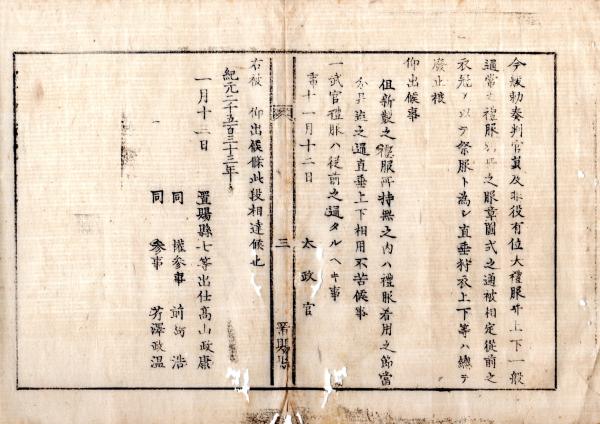 今般勅奏判官員及非役有位大礼服并上下一般
通常ノ禮服別冊之服章圖式之通被相定従前之
衣冠ヲ以テ祭服ト為シ直垂狩衣上下等ハ總テ
廢止被
仰出候事
但新製之禮服所持無之内ハ禮服着用之節當
分是迄之通直垂上下相用不苦候事
一武官禮服ハ従前之通タルヘキ事
十一月十二日
太政官
三
置賜縣
右被 仰出候條此段相達候也
紀元二千五百三十三年
一月十二日
置賜縣七等出仕高山政康
同 權参事 浩
同 参事 芳澤政温